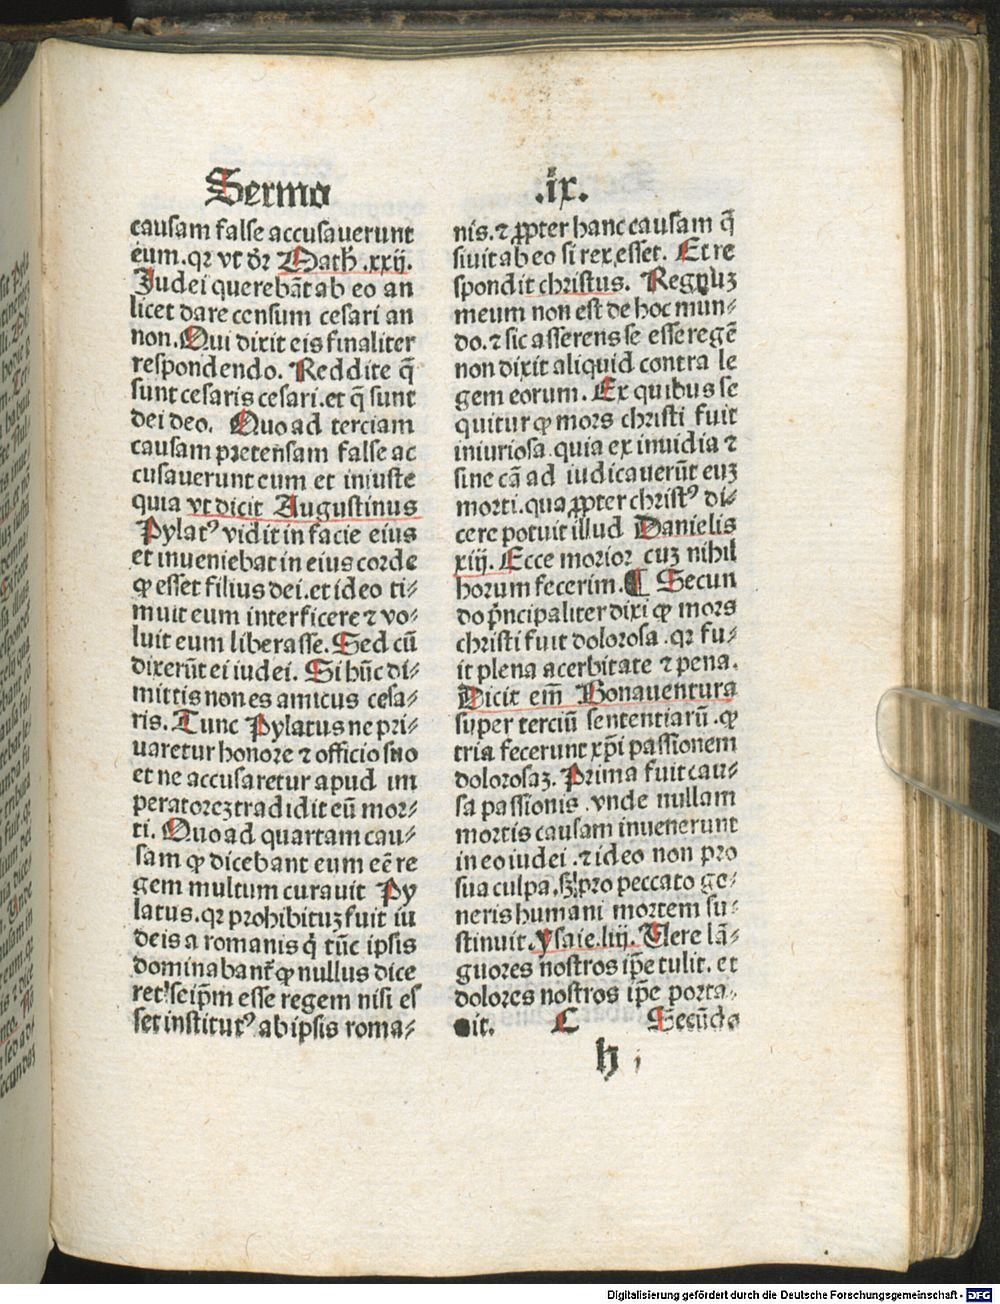 Sermo .ix.
causam false accusauerunt
eum. qꝛ vt dr̄ Math̄ .xxij.
Judei querebāt ab eo an
licet dare censum cesari an
non. Qui dixit eis finaliter
respondendo. Reddite q̄
sunt cesaris cesari. et q̄ sunt
dei deo. Quo ad terciam
causam pretensam false ac
cusauerunt eum et iniuste
quia vt dicit Augustinus
Pylatꝰ vidit in facie eius
et inueniebat in eius corde
ꝙ esset filius dei. et ideo ti⸗
muit eum interficere ⁊ vo⸗
luit eum liberasse. Sed cū
dixerūt ei iudei. Si hūc di⸗
mittis non es amicus cesa⸗
ris. Tunc Pylatus ne pri⸗
uaretur honore ⁊ officio suo
et ne accusaretur apud im
peratoreꝫ tradidit eū mor⸗
ti. Quo ad quartam cau⸗
sam ꝙ dicebant eum eē re
gem multum curauit Py
latus. qꝛ prohibituꝫ fuit iu
deis a romanis q̇ tūc ipsis
dominabant̄ ꝙ nullus dice
ret seip̄m esse regem nisi es
set institutꝰ ab ipsis roma⸗
nis. ⁊ ꝓpter hanc causam q̄
siuit ab eo si rex esset. Et re
spondit christus. Regnuꝫ
meum non est de hoc mun⸗
do. ⁊ sic asserens se esse regē
non dixit aliquid contra le
gem eorum. Ex quibus se
quitur ꝙ mors christi fuit
iniuriosa quia ex inuidia ⁊
sine cā ad iudicauerūt euꝫ
morti. qua ꝓpter christꝰ di⸗
cere potuit illud Danielis
xiij. Ecce morior cuꝫ nihil
horum fecerim. ¶ Secun
do p̄ncipaliter dixi ꝙ mors
christi fuit dolorosa. qꝛ fu⸗
it plena acerbitate ⁊ pena.
Dicit em̄ Bonauentura
super terciū sententiarū. ꝙ
tria fecerunt xp̄i passionem
dolorosaꝫ. Prima fuit cau⸗
sa passionis. vnde nullam
mortis causam inuenerunt
in eo iudei. ⁊ ideo non pro
sua culpa, sꝫ pro peccato ge⸗
neris humani mortem su⸗
stinuit. Ysaie. liij. Uere lā⸗
guores nostros ip̄e tulit. et
dolores nostros ip̄e porta⸗
uit. C Secūdo
h
Digitalisierung gefördert durch die Deutsche Forschungsgemeinschaft - DFG